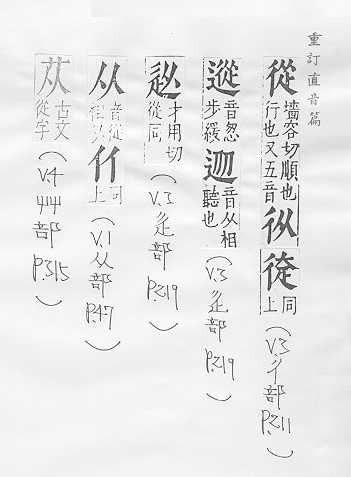 重訂直音篇
從 墻容切順也行也又五音 㐺 徔 同上 (V.3 彳部 P.211)
𨔭 音怱步緩 迦 音从相聽也 (V.3 辵部 P.219)
才用切從同 (V.3 辵部 P.219)
从 音從 同上 (V.1 从部 P.47)
苁 古文從字 (V.4 艸部 P.315)